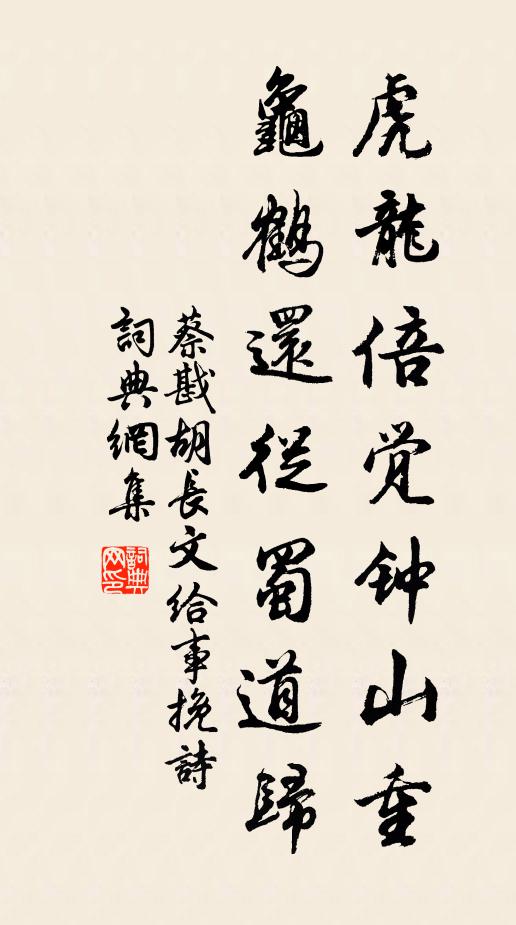 虎龍倍覺钟山重
龜鶴還從蜀道歸
蔡戡胡長文給事挽詩
詞典網集
詞典网印